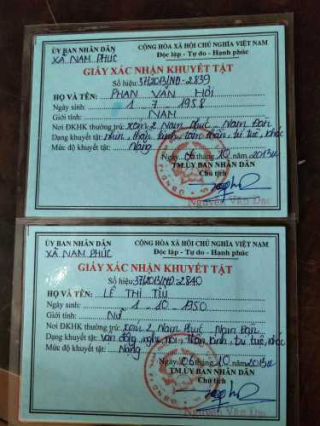 ỦY BAN NHÂN DÂN CỘNG HÒA XÃ HỘI CHỦ NGHĨA VIỆT NAM
XÃ NAM PHÚC Độc lập - Tự do - Hạnh phúc
GIẤY XÁC NHẬN KHUYẾT TẬT
Số hiệu: 37/2013/NĐ-2839
HỌ VÀ TÊN: PHAN VĂN HỒI
Ngày sinh: 1 - 7 - 1958
Giới tính: NAM
Nơi ĐKHK thường trú: xóm 2, Nam Phúc - Nam Đàn
Dạng khuyết tật: thần kinh, tâm thần, trí tuệ, khác
Mức độ khuyết tật: Nặng
Ngày 06 tháng 10 năm 2013
TM.ỦY BAN NHÂN DÂN
Chủ tịch
Nguyễn Văn Đại
ỦY BAN NHÂN DÂN CỘNG HÒA XÃ HỘI CHỦ NGHĨA VIỆT NAM
XÃ NAM PHÚC Độc lập - Tự do - Hạnh phúc
GIẤY XÁC NHẬN KHUYẾT TẬT
Số hiệu: 37/2013/NĐ-2840
HỌ VÀ TÊN: LÊ THỊ TÍU
Ngày sinh: 1 - 10 - 1950
Giới tính: Nữ
Nơi ĐKHK thường trú: xóm 2, Nam Phúc - Nam Đàn
Dạng khuyết tật: vận động, nghe, nói, thần kinh, trí tuệ, khác
Mức độ khuyết tật: Nặng
Ngày 06 tháng 10 năm 2013
TM.ỦY BAN NHÂN DÂN
Chủ tịch
Nguyễn Văn Đại